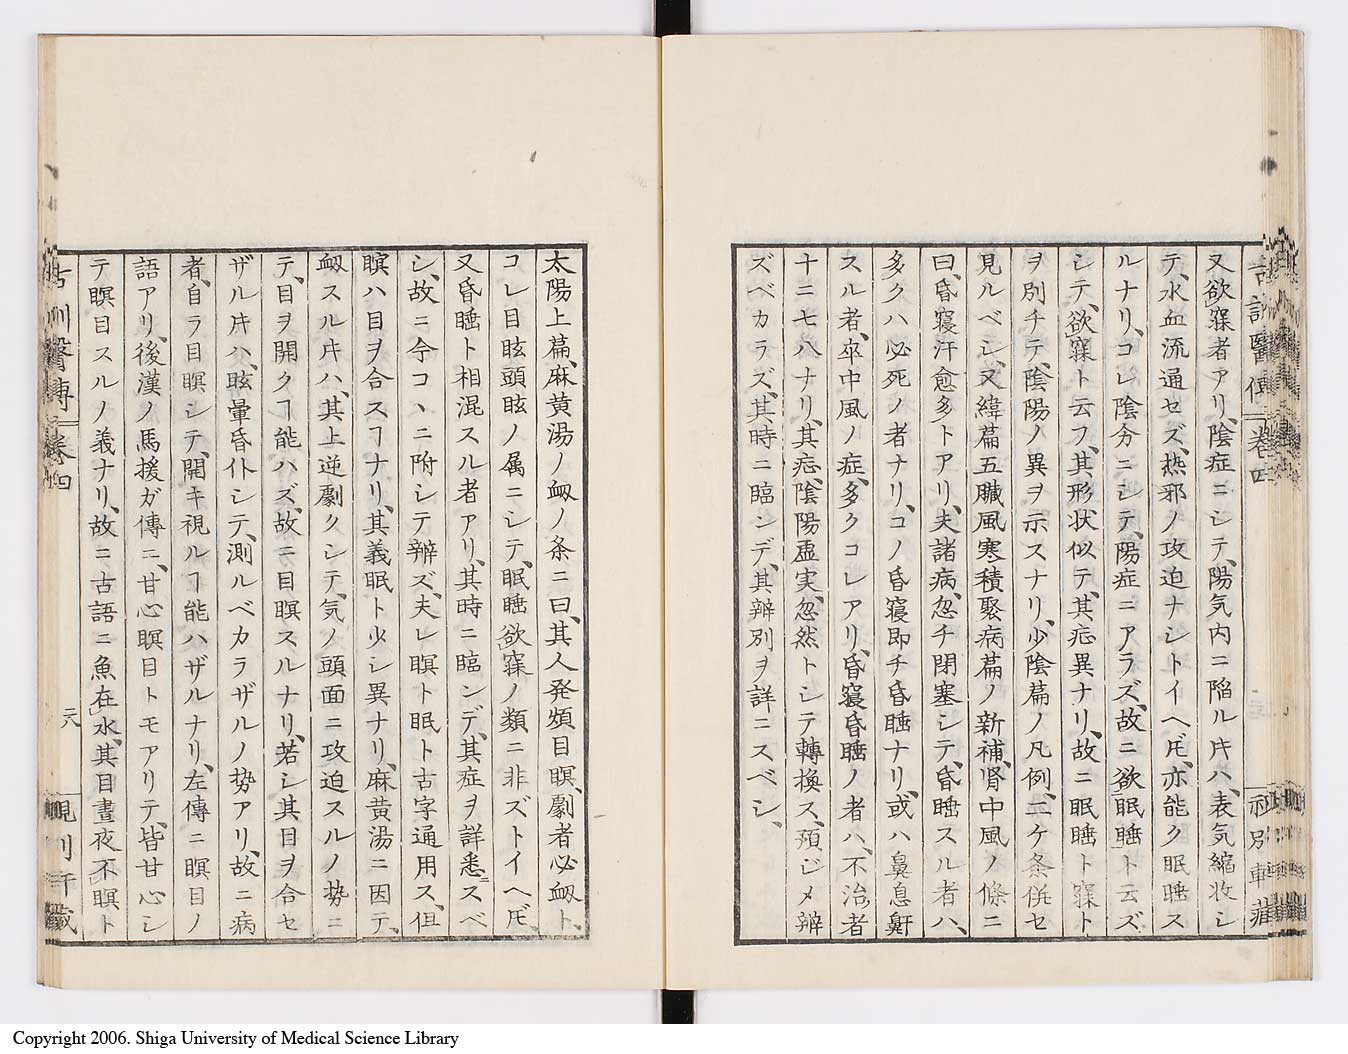 又欲寐者アリ、陰症ニシテ、陽気内ニ陥ル𪜈ハ、表気縮收シ
テ、水血流通セズ、熱邪ノ攻迫ナシトイヘ𪜈、亦能ク眠睡ス
ルナリ、コレ陰分ニシテ、陽症ニアラズ、故ニ欲眠睡ト云ズ
シテ、欲寐ト云フ、其形状似テ、其症異ナリ、故ニ眠睡ト寐ト
ヲ別チテ、陰陽ノ異ヲ示スナリ、少陰篇ノ凡例、二ケ条併セ
見ルベシ、又緯篇五臓風寒積聚病篇ノ新補、腎中風ノ條ニ
曰、昏寝汗愈多トアリ、夫諸病、忽チ閉塞シテ、昏睡スル者ハ、
多クハ必死ノ者ナリ、コノ昏寝即チ昏睡ナリ、或ハ鼻息鼾
スル者、卒中風ノ症、多クコレアリ、昏寝昏睡ノ者ハ、不治者
十ニ七八ナリ、其症、陰陽虚実、忽然トシテ轉換ス、預ジメ辨
ズベカラズ、其時ニ臨ンデ、其辨別ヲ詳ニスベシ、
太陽上篇、麻黄湯ノ衂ノ条ニ曰、其人発煩目瞑、劇者必衂ト、
コレ目眩頭眩ノ属ニシテ、眠睡欲寐ノ類ニ非ズトイヘ𪜈、
又昏睡ト相混スル者アリ、其時ニ臨ンデ、其症ヲ詳悉ニスベ
シ、故ニ今コヽニ附シテ辨ズ、夫レ瞑ト眠ト古字通用ス、但
瞑ハ目ヲ合スヿナリ、其義眠ト少シ異ナリ、麻黄湯ニ因テ、
衂スル𪜈ハ、其上逆劇クシテ、気ノ頭面ニ攻迫スルノ勢ニ
テ、目ヲ開クヿ能ハズ、故ニ目瞑スルナリ、若シ其目ヲ合セ
ザル𪜈ハ、眩暈昏仆シテ、測ルベカラザルノ勢アリ、故ニ病
者、自ラ目瞑シテ、開キ視ルヿ能ハザルナリ、左傳ニ瞑目ノ
語アリ、後漢ノ馬援ガ傳ニ、甘心瞑目トモアリテ、皆甘心シ
テ瞑目スルノ義ナリ、故ニ古語ニ魚在水、其目晝夜不瞑ト
古訓醫傳 卷四
六
Copyright 2006. Shiga University of Medical Science Library